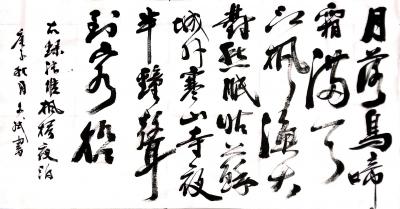 月落烏啼
霜滿天
江楓漁火
對愁眠姑蘇
城外寒山寺夜
半鐘聲
到客船
右錄張継楓橋夜泊
庚子秋月書